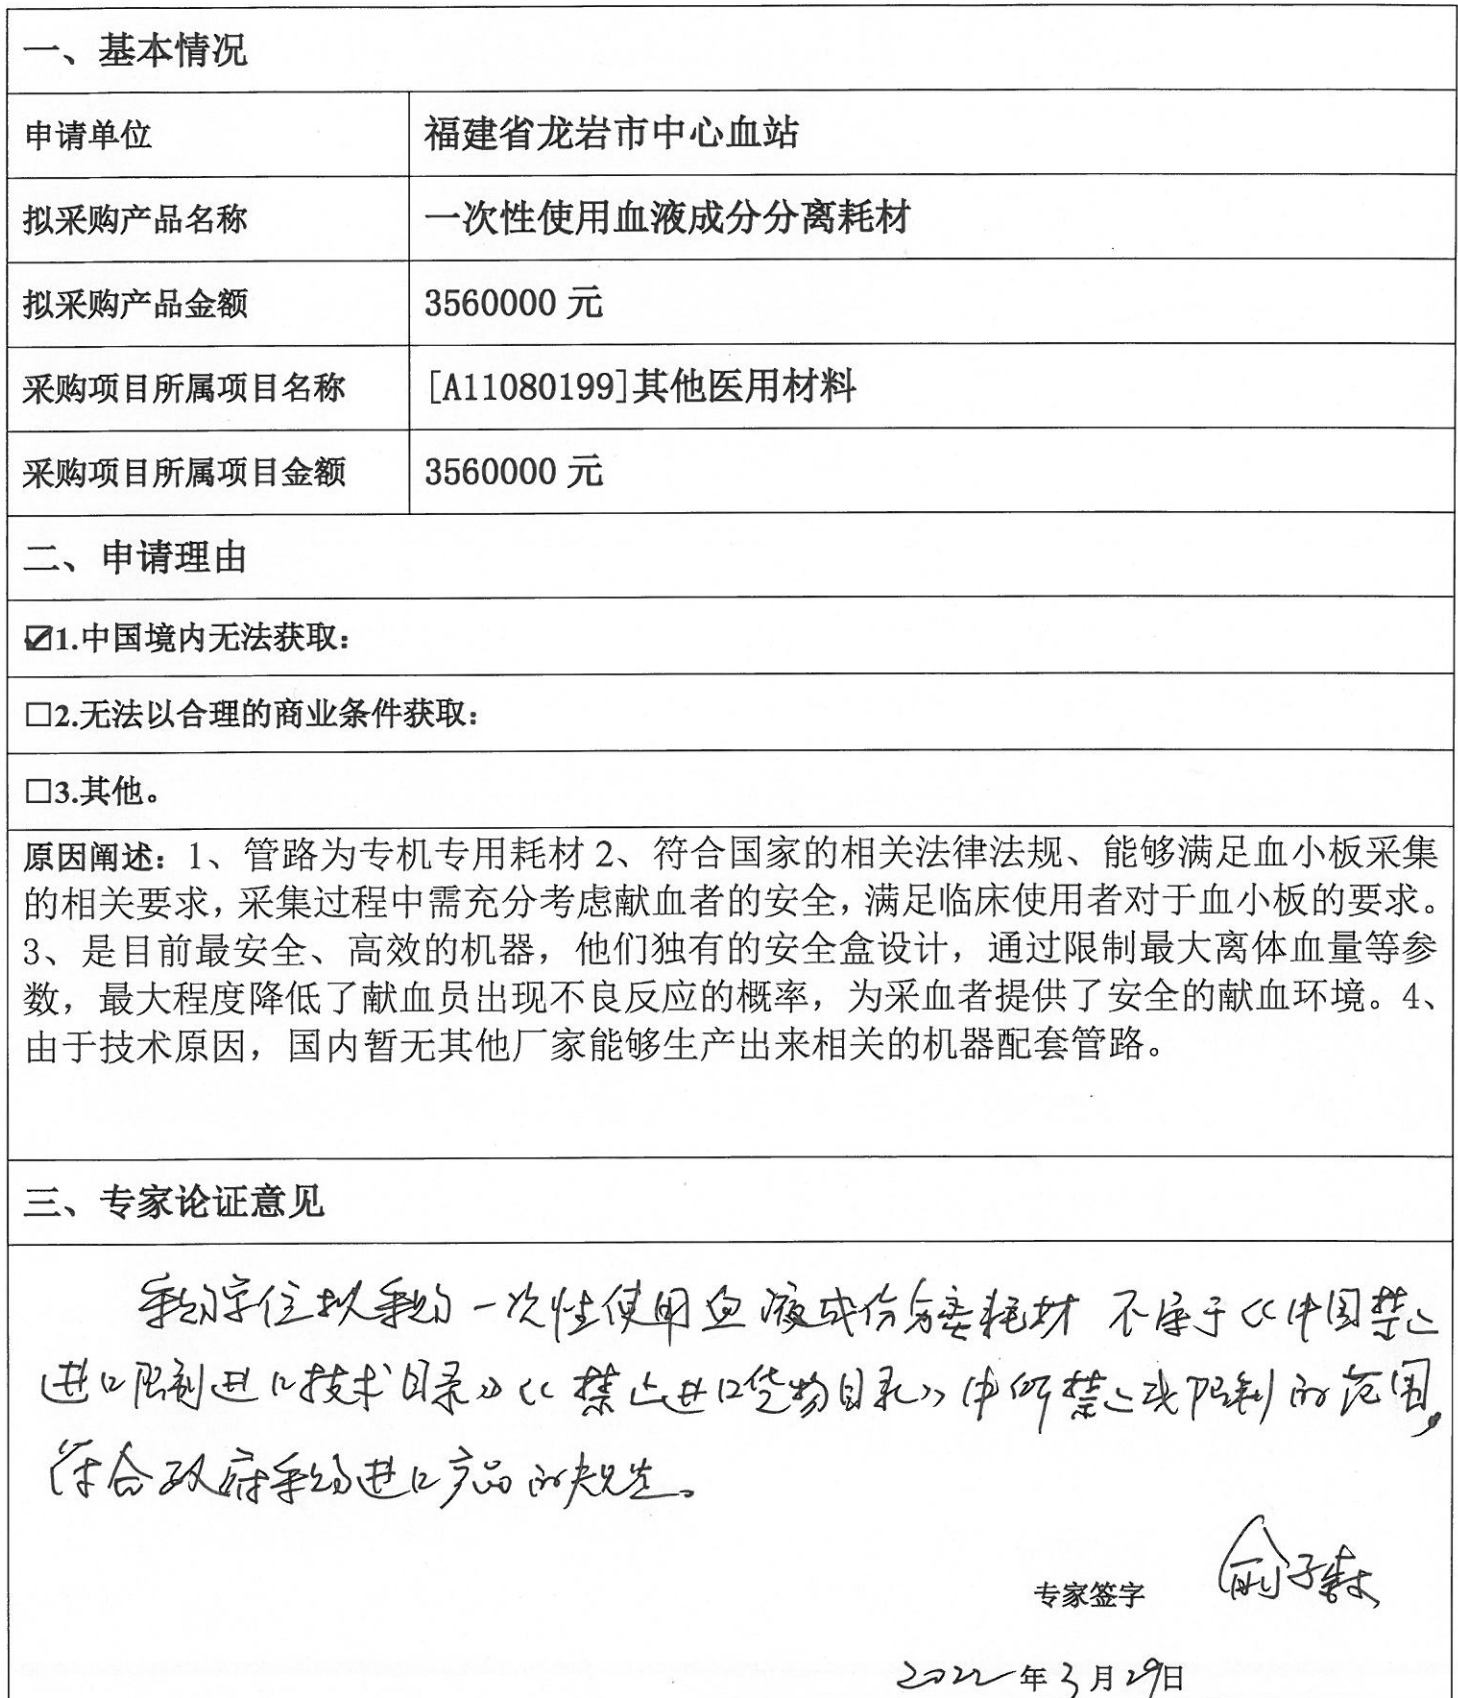 一、基本情况
申请单位 福建省龙岩市中心血站
拟采购产品名称 一次性使用血液成分分离耗材
拟采购产品金额 3560000 元
采购项目所属项目名称 [A11080199]其他医用材料
采购项目所属项目金额 3560000 元
二、申请理由
☑1.中国境内无法获取：
□2.无法以合理的商业条件获取：
□3.其他。
原因阐述：1、管路为专机专用耗材 2、符合国家的相关法律法规、能够满足血小板采集
的相关要求，采集过程中需充分考虑献血者的安全，满足临床使用者对于血小板的要求。
3、是目前最安全、高效的机器，他们独有的安全盒设计，通过限制最大离体血量等参
数，最大程度降低了献血员出现不良反应的概率，为采血者提供了安全的献血环境。4、
由于技术原因，国内暂无其他厂家能够生产出来相关的机器配套管路。
三、专家论证意见
采购单位拟采购一次性使用血液成份分离耗材 不属于《中国禁止
进口限制进口技术目录》《禁止进口货物目录》中所禁止或限制的范围，
符合政府采购进口产品的规定。
专家签字
2022年3月29日